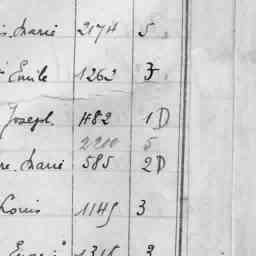 Marie 2174 5
Emile 1262 7
Joseph 482 1D
2210 5
re. Marie 585 2D
Louis 1145 3
1318 3